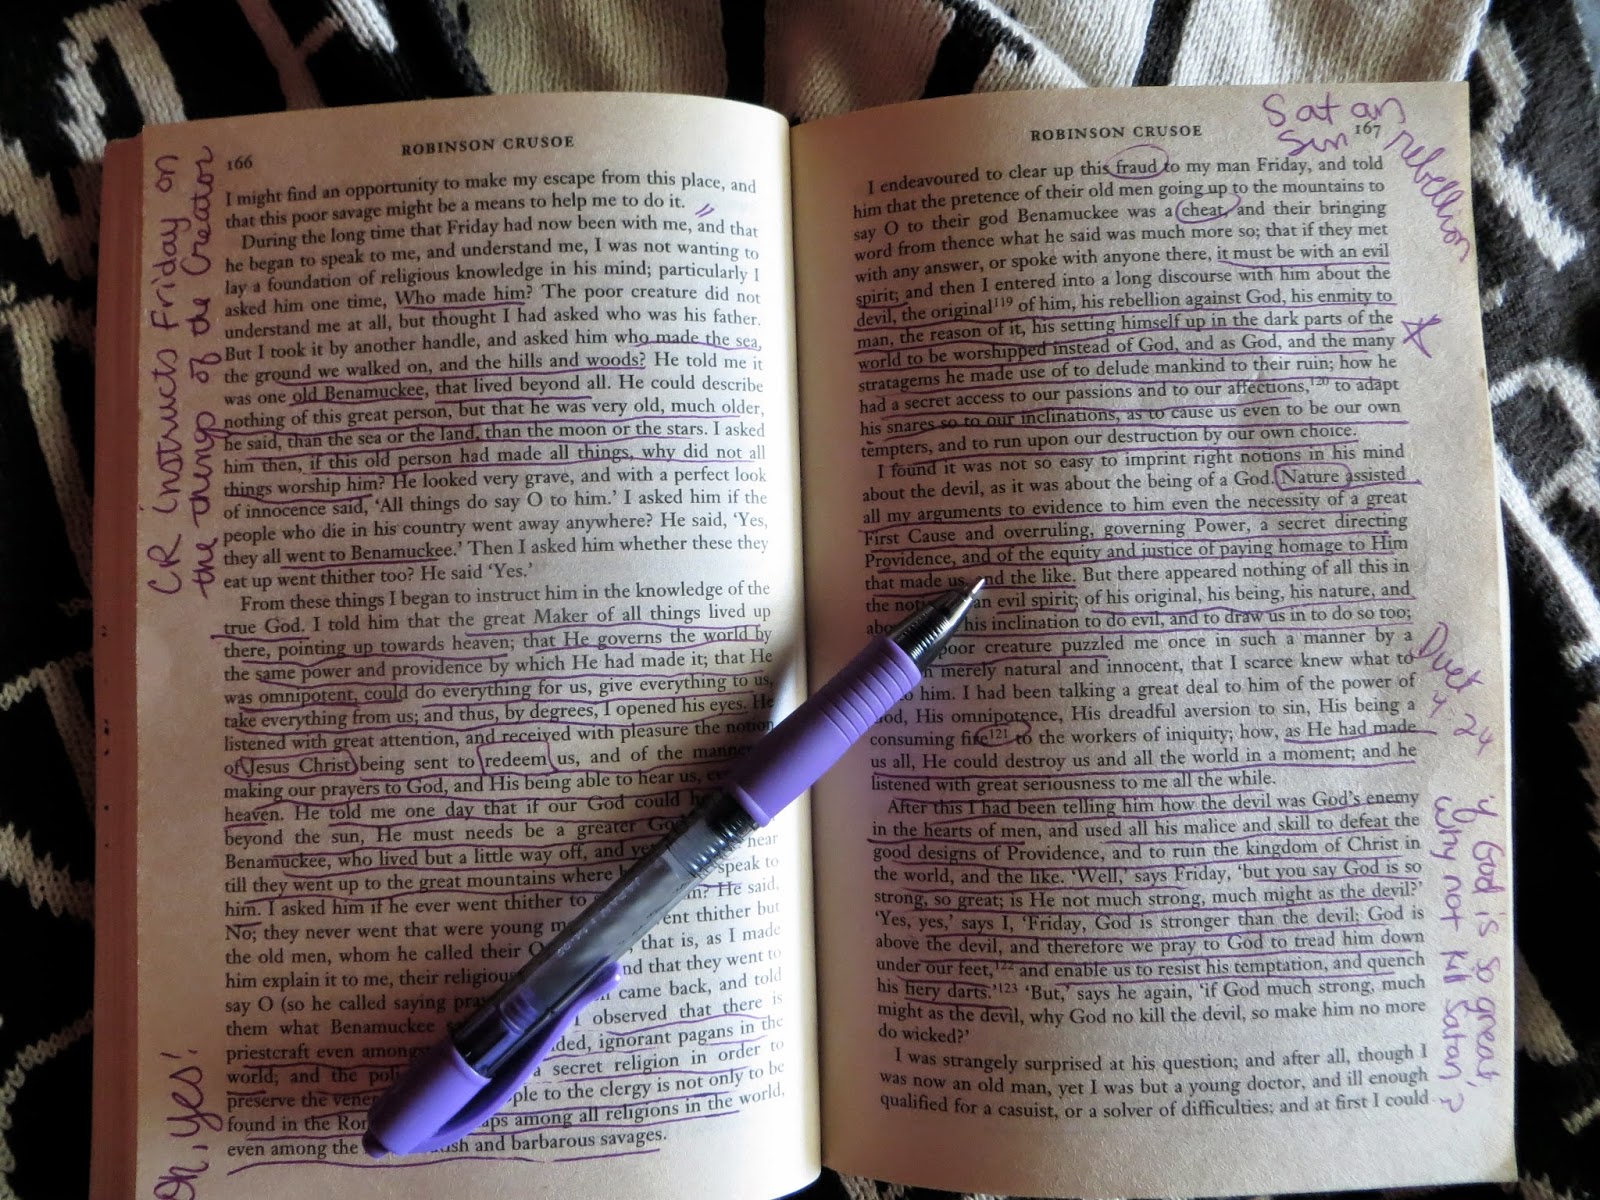 CR instructs Friday on
the things of the Creator
Oh, yes!
166
ROBINSON CRUSOE
I might find an opportunity to make my escape from this place, and
that this poor savage might be a means to help me to do it.
During the long time that Friday had now been with me, and that
he began to speak to me, and understand me, I was not wanting to
lay a foundation of religious knowledge in his mind; particularly I
asked him one time, Who made him? The poor creature did not
understand me at all, but thought I had asked who was his father.
But I took it by another handle, and asked him who made the sea,
the ground we walked on, and the hills and woods? He told me it
was one old Benamuckee, that lived beyond all. He could describe
nothing of this great person, but that he was very old, much older,
he said, than the sea or the land, than the moon or the stars. I asked
him then, if this old person had made all things, why did not all
things worship him? He looked very grave, and with a perfect look
of innocence said, ‘All things do say O to him.’ I asked him if the
people who die in his country went away anywhere? He said, ‘Yes,
they all went to Benamuckee.’ Then I asked him whether these they
eat up went thither too? He said ‘Yes.’
From these things I began to instruct him in the knowledge of the
true God. I told him that the great Maker of all things lived up
there, pointing up towards heaven; that He governs the world by
the same power and providence by which He had made it; that He
was omnipotent, could do everything for us, give everything to us,
take everything from us; and thus, by degrees, I opened his eyes. He
listened with great attention, and received with pleasure the notion
of Jesus Christ being sent to redeem us, and of the manner
making our prayers to God, and His being able to hear us,
heaven. He told me one day that if our God could
beyond the sun, He must needs be a greater
Benamuckee, who lived but a little way off, and hear
till they went up to the great mountains where speak to
him. I asked him if he ever went thither to He said,
No; they never went that were young thither but
the old men, whom he called their that is, as I made
him explain it to me, their religious and that they went to
say O (so he called saying came back, and told
them what Benamuckee I observed that there is
priestcraft even ignorant pagans in the
world; and the a secret religion in order to
preserve the to the clergy is not only to be
found in the among all religions in the world,
even among the and barbarous savages.
ROBINSON CRUSOE
167
Satan
Sin
rebellion
I endeavoured to clear up this fraud to my man Friday, and told
him that the pretence of their old men going up to the mountains to
say O to their god Benamuckee was a cheat, and their bringing
word from thence what he said was much more so; that if they met
with any answer, or spoke with anyone there, it must be with an evil
spirit; and then I entered into a long discourse with him about the
devil, the original119 of him, his rebellion against God, his enmity to
man, the reason of it, his setting himself up in the dark parts of the
world to be worshipped instead of God, and as God, and the many
stratagems he made use of to delude mankind to their ruin; how he
had a secret access to our passions and to our affections,120 to adapt
his snares so to our inclinations, as to cause us even to be our own
tempters, and to run upon our destruction by our own choice.
I found it was not so easy to imprint right notions in his mind
about the devil, as it was about the being of a God. Nature assisted
all my arguments to evidence to him even the necessity of a great
First Cause and overruling, governing Power, a secret directing
Providence, and of the equity and justice of paying homage to Him
that made us, and the like. But there appeared nothing of all this in
the an evil spirit; of his original, his being, his nature, and
his inclination to do evil, and to draw us in to do so too;
poor creature puzzled me once in such a manner by a
merely natural and innocent, that I scarce knew what to
to him. I had been talking a great deal to him of the power of
God, His omnipotence, His dreadful aversion to sin, His being a
consuming fire121 to the workers of iniquity; how, as He had made
us all, He could destroy us and all the world in a moment; and he
listened with great seriousness to me all the while.
After this I had been telling him how the devil was God’s enemy
in the hearts of men, and used all his malice and skill to defeat the
good designs of Providence, and to ruin the kingdom of Christ in
the world, and the like. ‘Well,’ says Friday, ‘but you say God is so
strong, so great; is He not much strong, much might as the devil?’
‘Yes, yes,’ says I, ‘Friday, God is stronger than the devil; God is
above the devil, and therefore we pray to God to tread him down
under our feet,122 and enable us to resist his temptation, and quench
his fiery darts.’123 ‘But,’ says he again, ‘if God much strong, much
might as the devil, why God no kill the devil, so make him no more
do wicked?’
I was strangely surprised at his question; and after all, though I
was now an old man, yet I was but a young doctor, and ill enough
qualified for a casuist, or a solver of difficulties; and at first I could
Duet
4 24
if God is so great,
why not kill Satan?